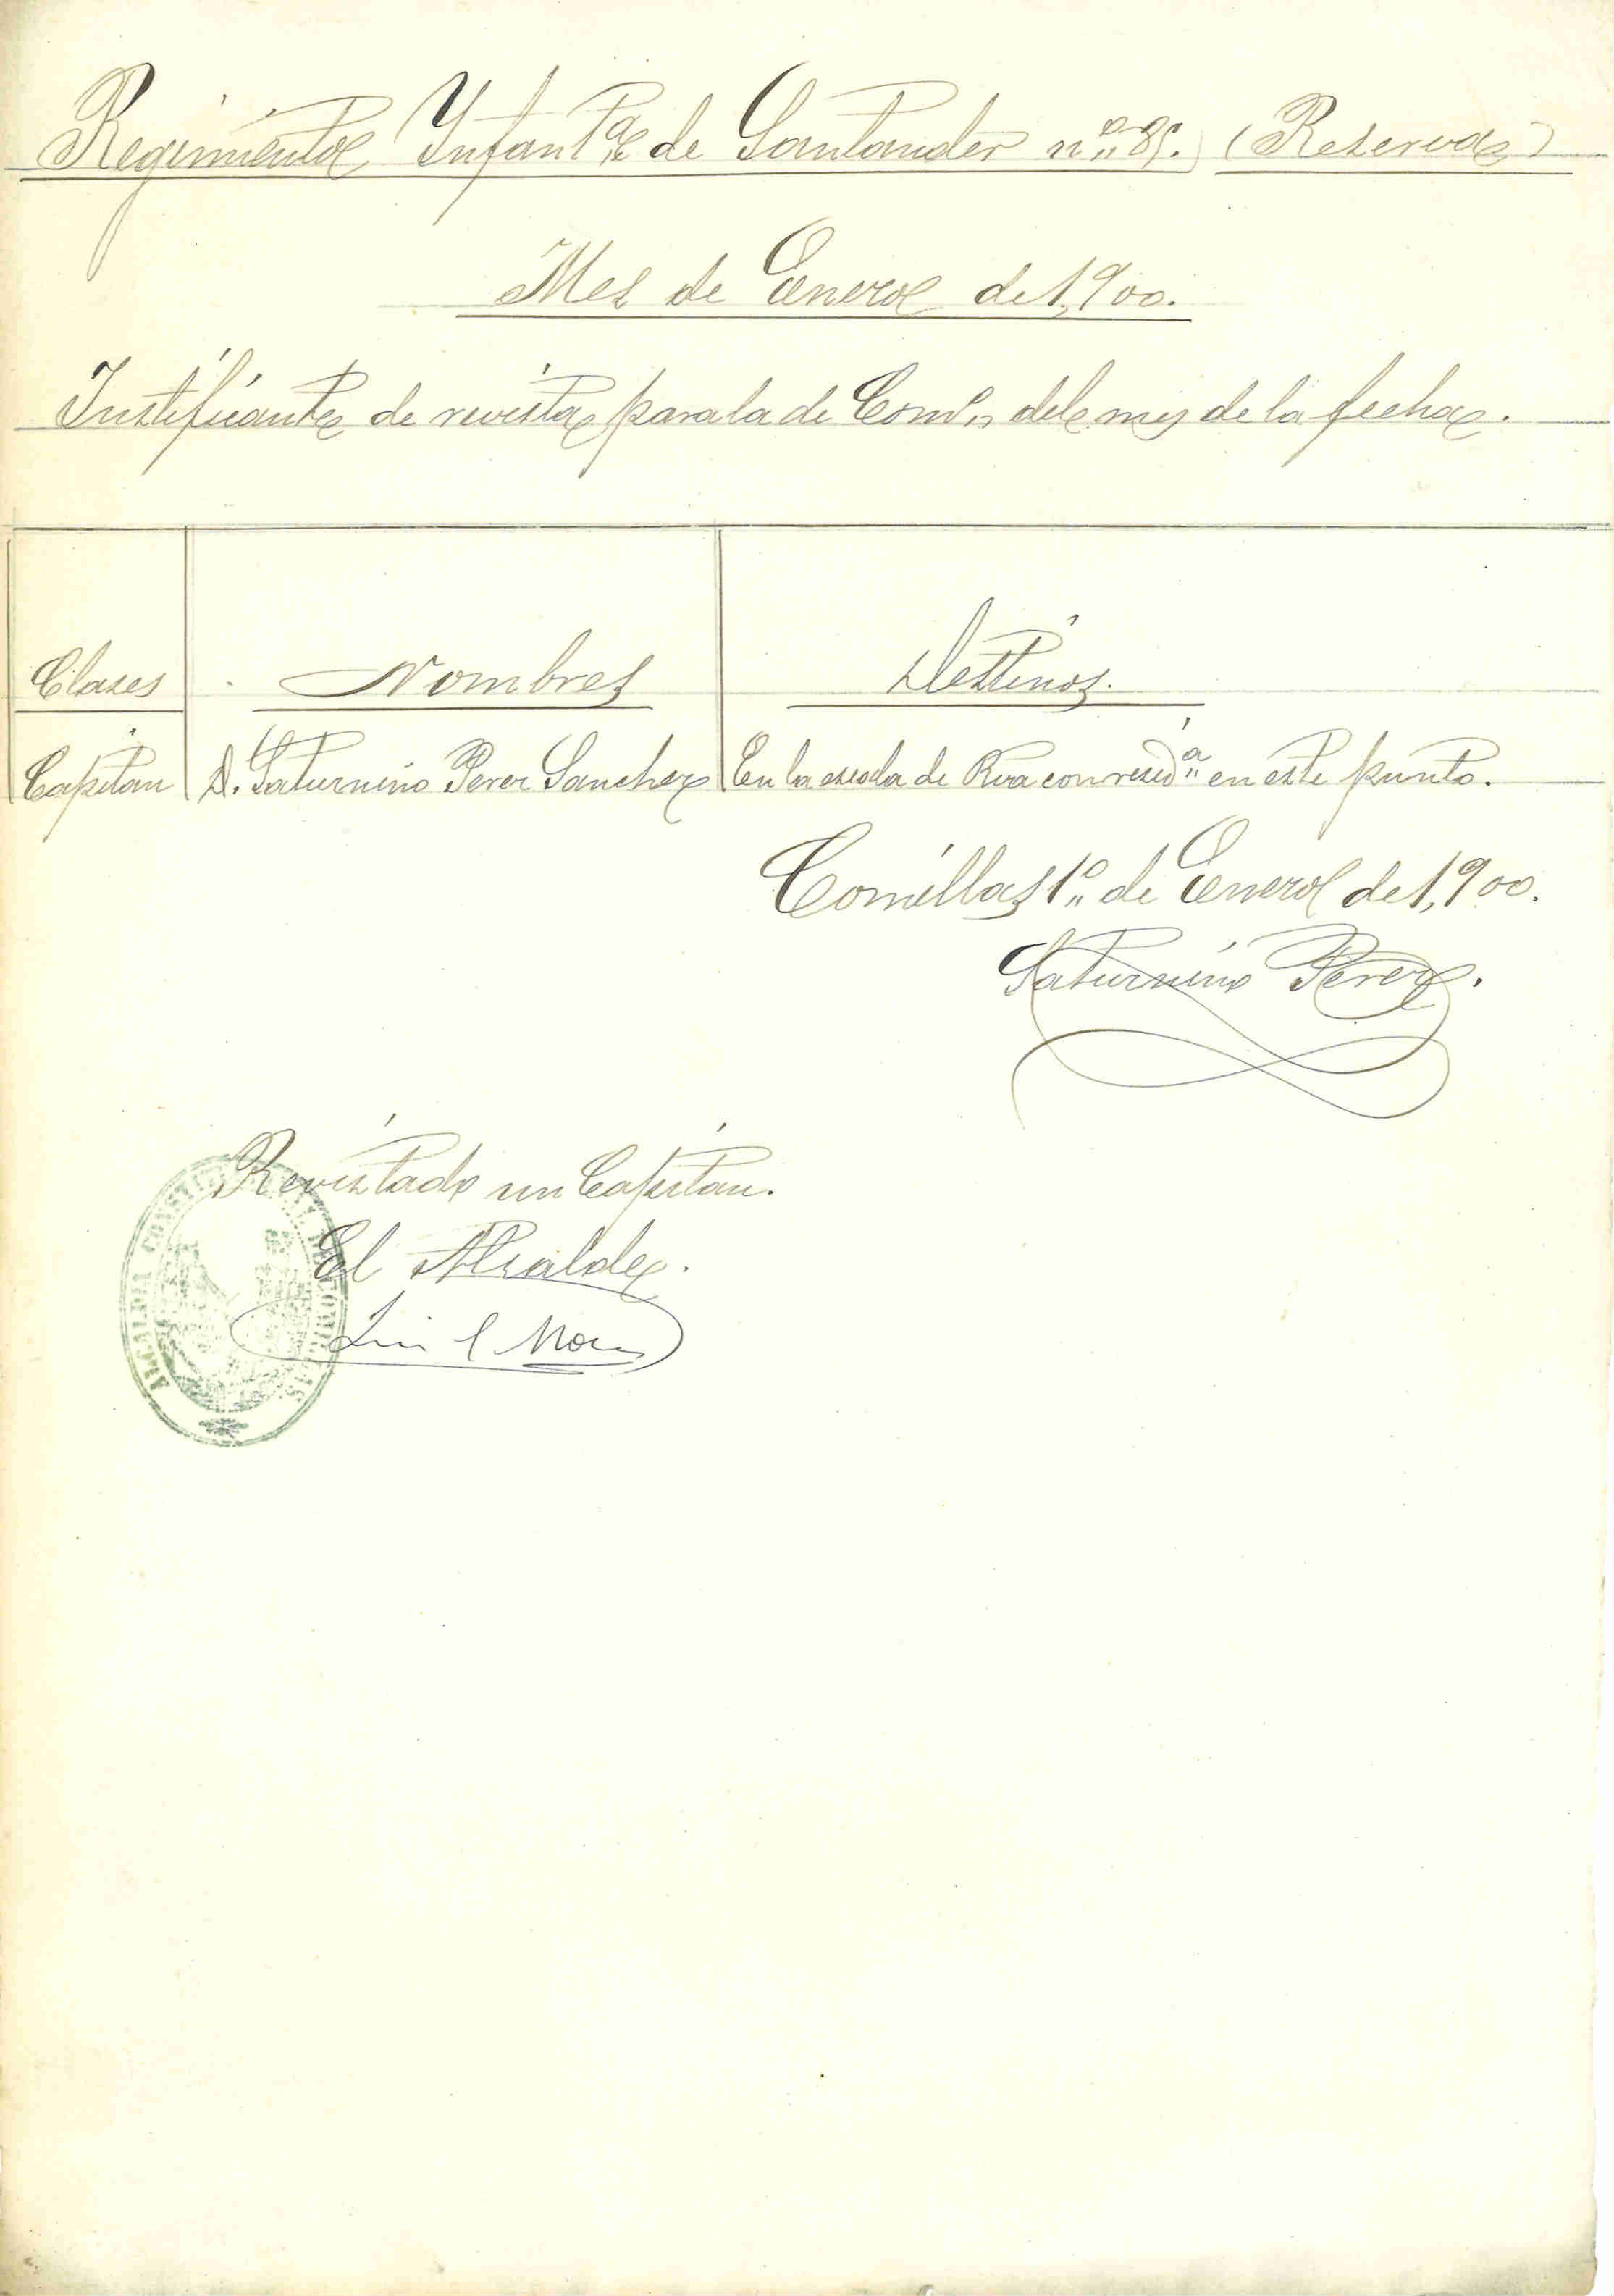 Regimiento Infantª de Santander nº 85. (Reserva)
Mes de Enero de 1,900.
Justificante de revista para la de Comº del mes de la fecha.
Clases Nombres Destinos.
Capitan D. Saturnino Perez Sanchez En la escala de Rva con residª en este punto.
Comillas 1º de Enero de 1,900.
Saturnino Perez.
Revistado un Capitan.
El Alcalde.
ALCALDIA CONSTITUCIONAL DE COMILLAS